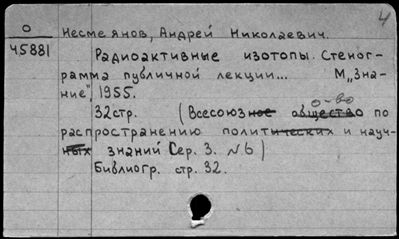 4
О Несмеянов, Андрей Николаевич.
45881 Радиоактивные изотопы. Стеног-
рамма публичной лекции... М., "Зна-
ние", 1955.
32стр. (Всесоюзное общество о-во по
распространению политических и науч-
ных знаний Сер. 3. №6)
Библиогр. стр. 32.